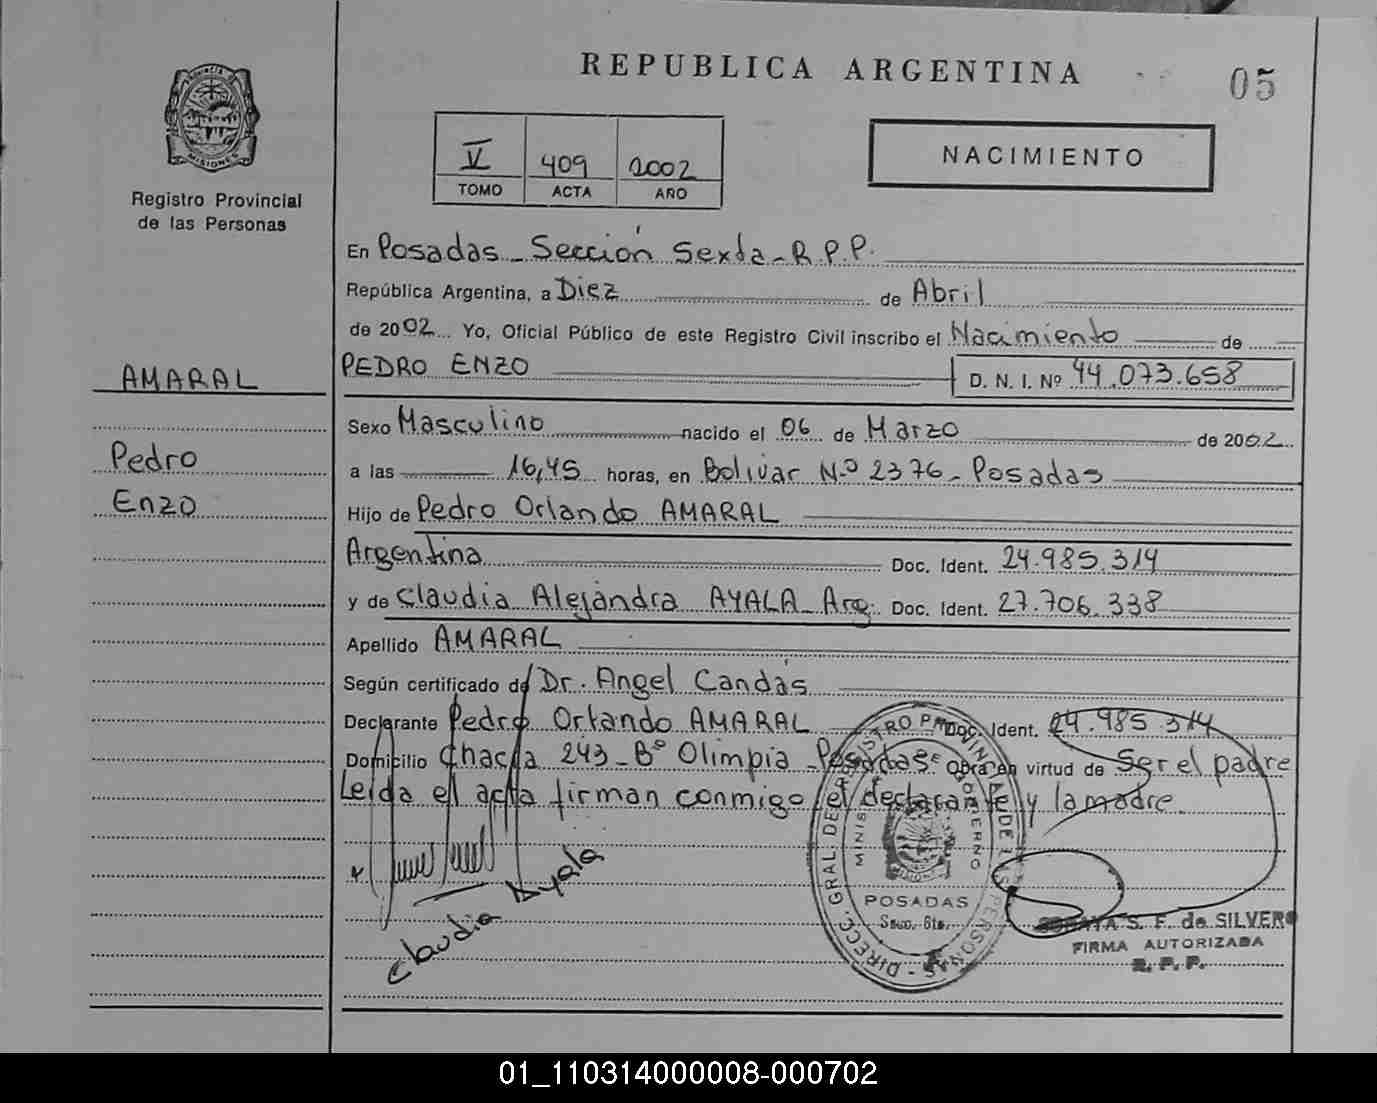 REPUBLICA ARGENTINA
05
PROVINCIA DE
MISIONES
Registro Provincial
de las Personas
V 409 2002
TOMO ACTA AÑO
NACIMIENTO
En Posadas - Sección Sexta - R.P.P.
República Argentina, a Diez de Abril
de 2002 Yo, Oficial Público de este Registro Civil inscribo el Nacimiento de
PEDRO ENZO D. N. I. Nº 44.073.658
AMARAL
Pedro
Enzo
Sexo Masculino nacido el 06 de Marzo de 2002
a las 16,45 horas, en Bolivar N.º 2376 - Posadas
Hijo de Pedro Orlando AMARAL
Argentina Doc. Ident. 24.985.314
y de Claudia Alejandra AYALA - Arg. Doc. Ident. 27.706.338
Apellido AMARAL
Según certificado de Dr. Angel Candás
Declarante Pedro Orlando AMARAL Doc. Ident. 24.985.314
Domicilio Chacra 243 - Bº Olimpia - Posadas Obra en virtud de Ser el padre
Leída el acta firman conmigo el declarante y la madre
Claudia Ayala
DIRECC. GRAL. DE REGISTRO PROVINCIAL DE LAS PERSONAS
POSADAS
Secc. 6ta.
SORAYA S. F. de SILVERO
FIRMA AUTORIZADA
R. P. P.
01_110314000008-000702